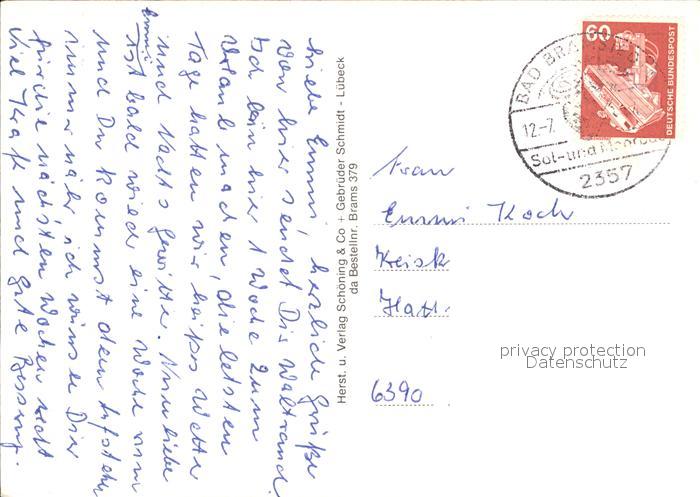 Liebe Emmi herzliche Grüße
von hier sendet Dir Waltraud.
Ich bin hier 1 Woche zum
Urlaub machen, die letzten
Tage hatten wir heiße
und Nachts Gewitter. Nun liebe
Emmi
ist bald wieder eine Woche rum
und Du kommst dem
immer näher ich wünsche Dir
für die nächsten Wochen recht
viel Kraft und gute Besserung.
Herst. u. Verlag Schöning & Co + Gebrüder Schmidt - Lübeck
da Bestellnr. Brams 379
60
DEUTSCHE BUNDESPOST
BAD BRAMSTEDT
12.-7.
Sol- und Moorbad
2357
Frau
Emmi Koch
6390
privacy protection
Datenschutz